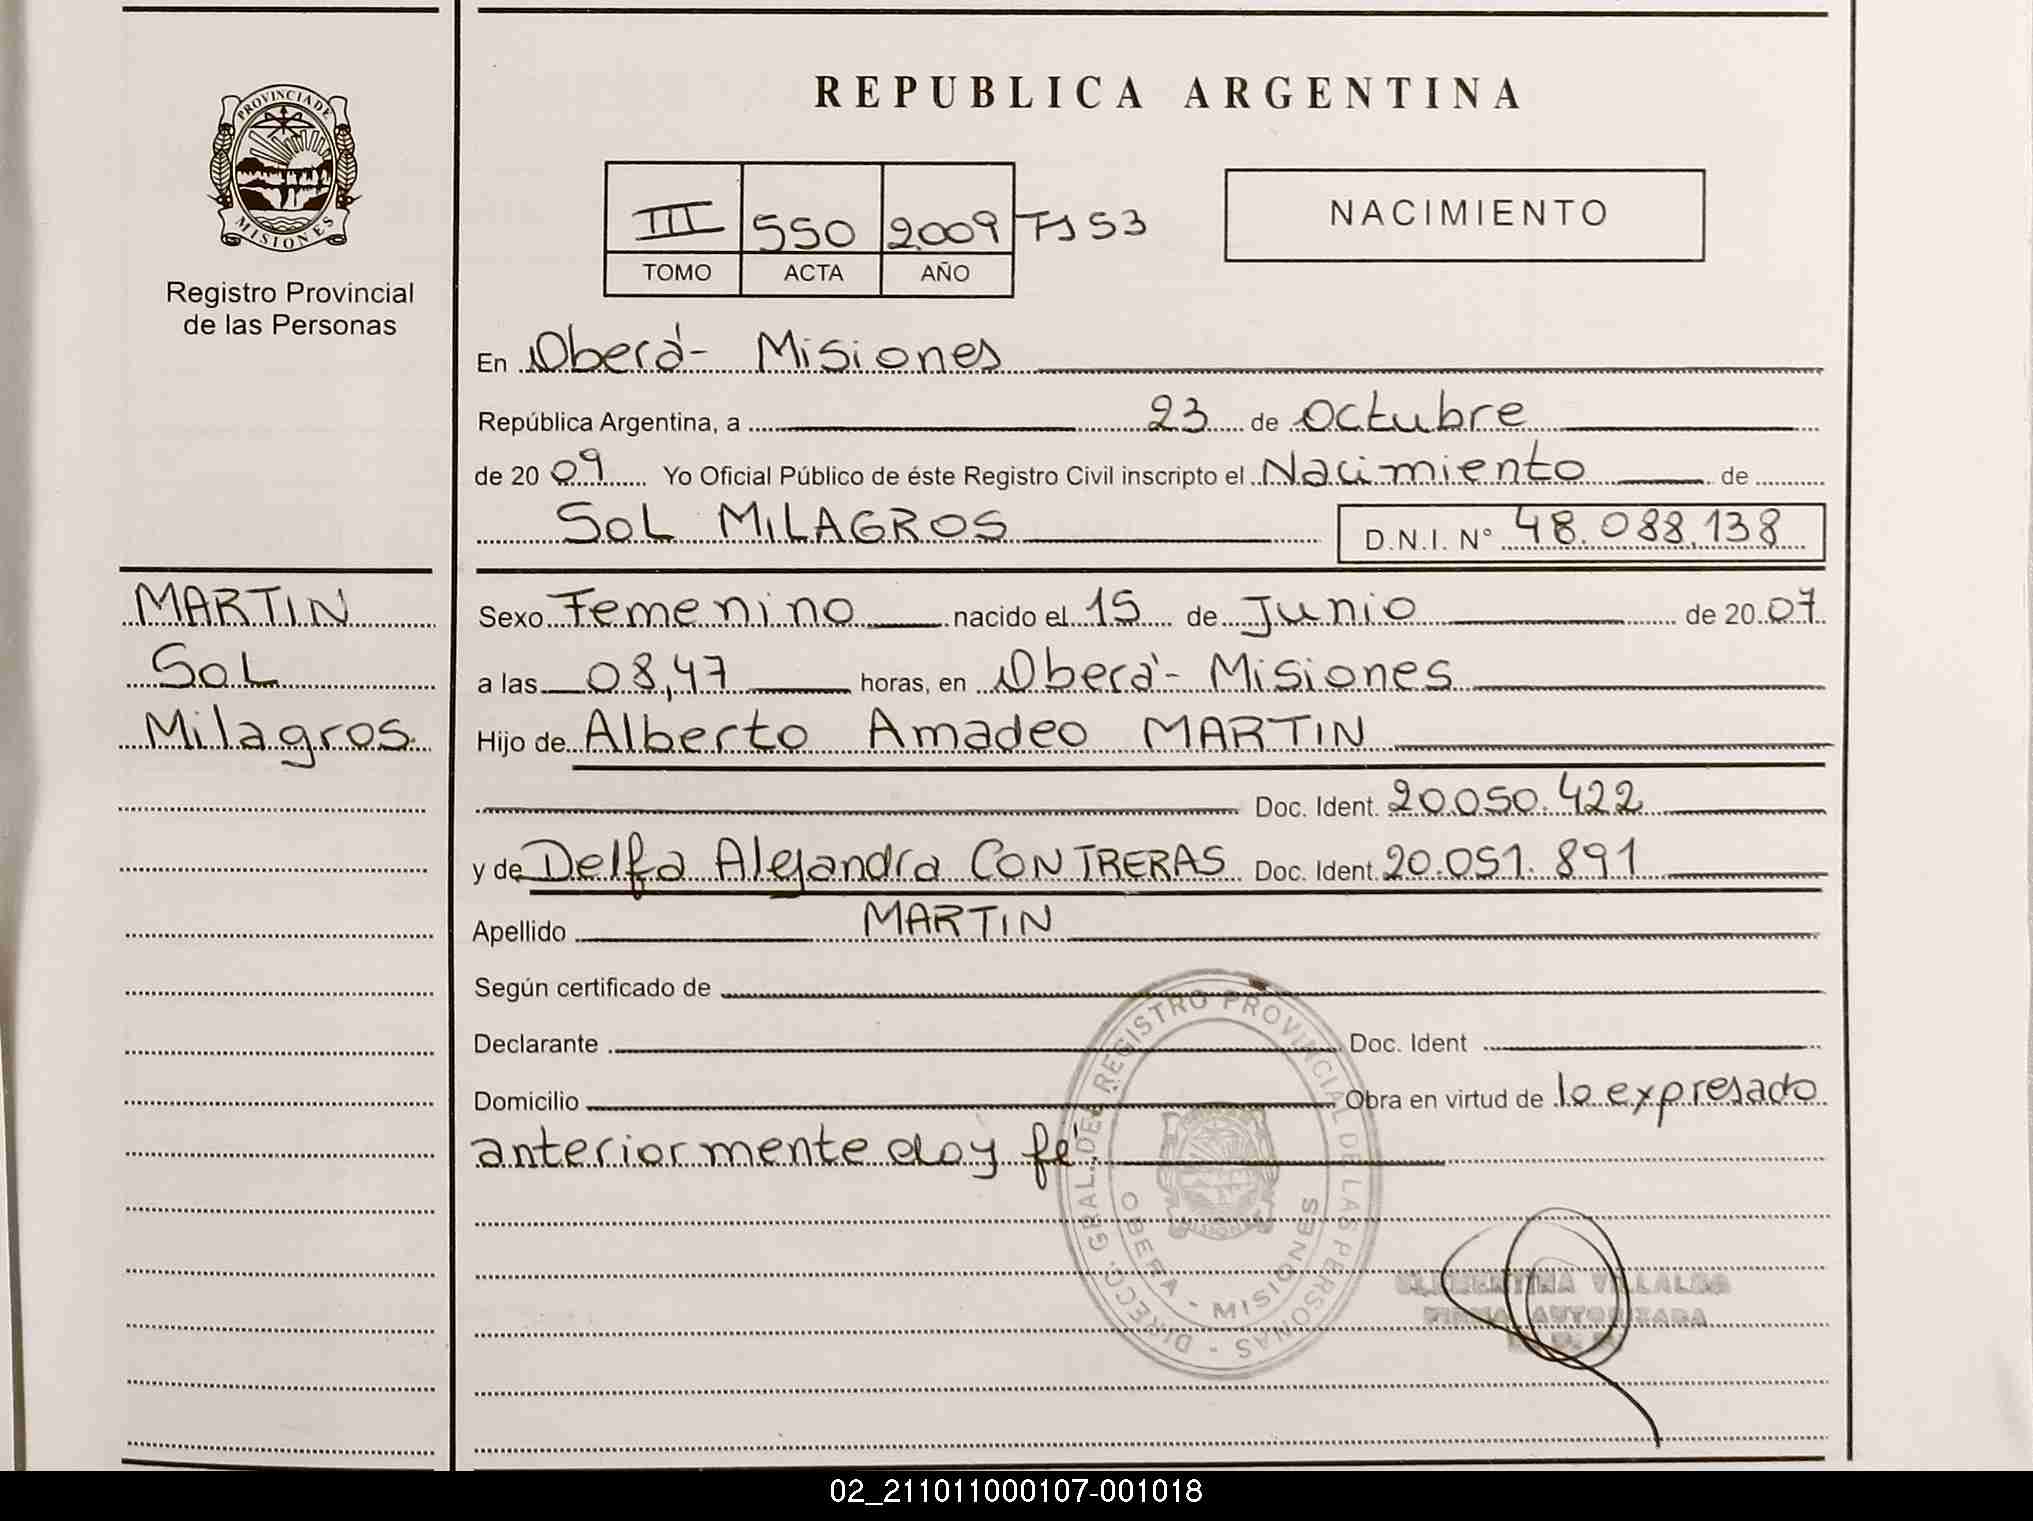 REPUBLICA ARGENTINA
PROVINCIA DE
MISIONES
Registro Provincial
de las Personas
III 550 2009 Fs 53
TOMO ACTA AÑO
NACIMIENTO
En Oberá - Misiones
República Argentina, a 23 de octubre
de 2009 Yo Oficial Público de éste Registro Civil inscripto el Nacimiento de
SOL MILAGROS D.N.I. N° 48.088.138
MARTIN
SOL
Milagros.
Sexo Femenino nacido el 15 de Junio de 2007
a las 08,47 horas, en Oberá - Misiones
Hijo de Alberto Amadeo MARTIN
Doc. Ident. 20.050.422
y de Delfa Alejandra CONTRERAS Doc. Ident. 20.051.891
Apellido MARTIN
Según certificado de
Declarante Doc. Ident
Domicilio Obra en virtud de lo expresado
anteriormente doy fé.
DIRECC. GRAL. DEL REGISTRO PROVINCIAL DE LAS PERSONAS -
OBERA - MISIONES
CLEMENTINA VILLALBA
FIRMA AUTORIZADA
02_211011000107-001018